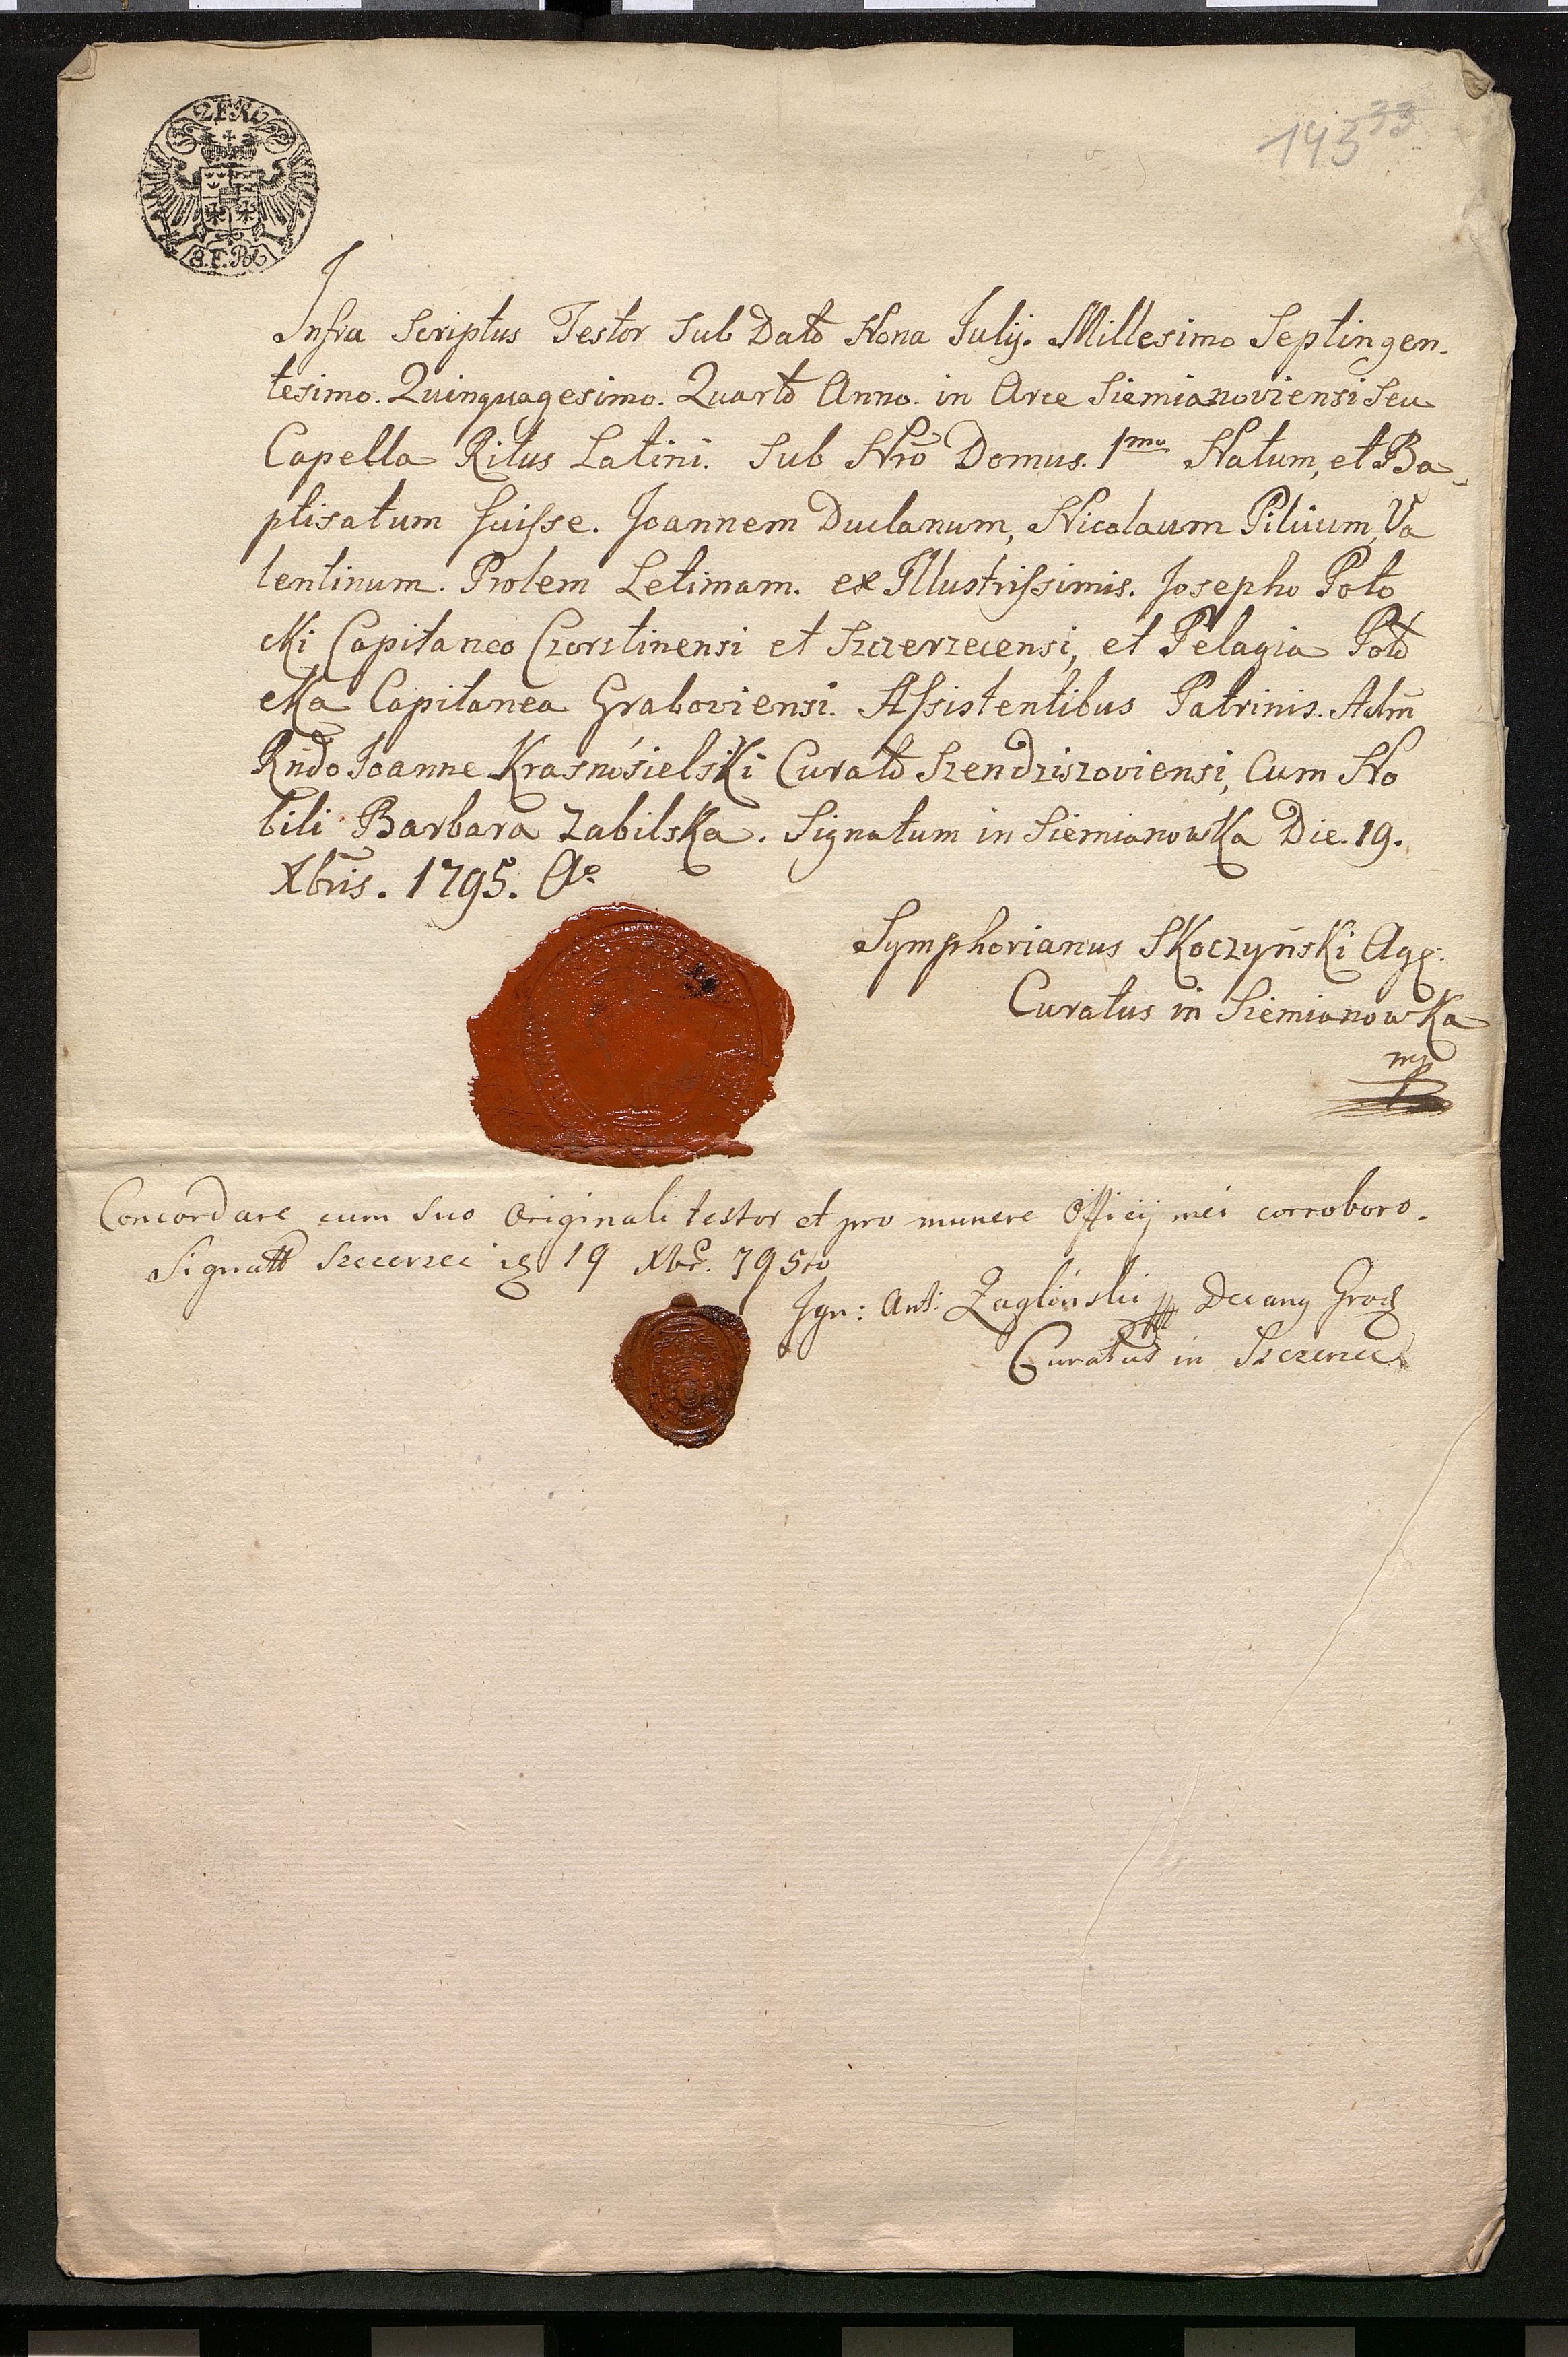 2 F.Rl
8.F.Pol
143 33
Infra Scriptus Testor Sub Dato Nona Julij. Millesimo Septingen-
tesimo. Quinquagesimo. Quarto Anno. in Arce Siemianoviensi Seu
Capella Ritus Latini. Sub Nrō Domus. 1mo Natum, et Ba-
ptisatum fuisse. Joannem Duclanum, Nicolaum Pilvium, Va
lentinum. Prolem Letimam. ex Illustrissimis. Josepho Poto
cki Capitaneo Czorstinensi et Szczerzecensi, et Pelagia Poto
cka Capitanea Graboviensi. Assistentibus Patrinis. Adm̄
Rndo Joanne Krasnosielski Curato Szendziszoviensi, Cum No
bili Barbara Zabilska. Signatum in Siemianowka Die. 19.
Xbris. 1795. Ao
Symphorianus Skoczyński Agę.
Curatus in Siemianowka
mp
Concordare cum suo Originali testor et pro munere Officij mei corroboro.
Signatt 19 Xbr. 795to
Ign: Ant: Decany Grod
Curatus in